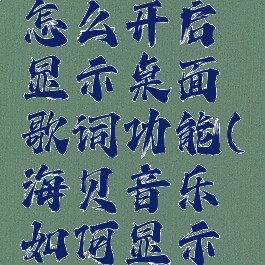 怎么开启
显示桌面
歌词功能(
海贝音乐
如何显示